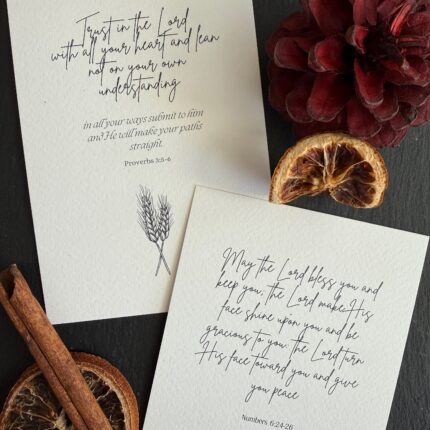 Trust in the Lord
with all your heart and lean
not on your own
understanding
in all your ways submit to him
and He will make your paths
straight.
Proverbs 3:5-6
May the Lord bless you and
keep you, the Lord make His
face shine upon you and be
gracious to you. the Lord turn
His face toward you and give
you peace
Numbers 6:24-26